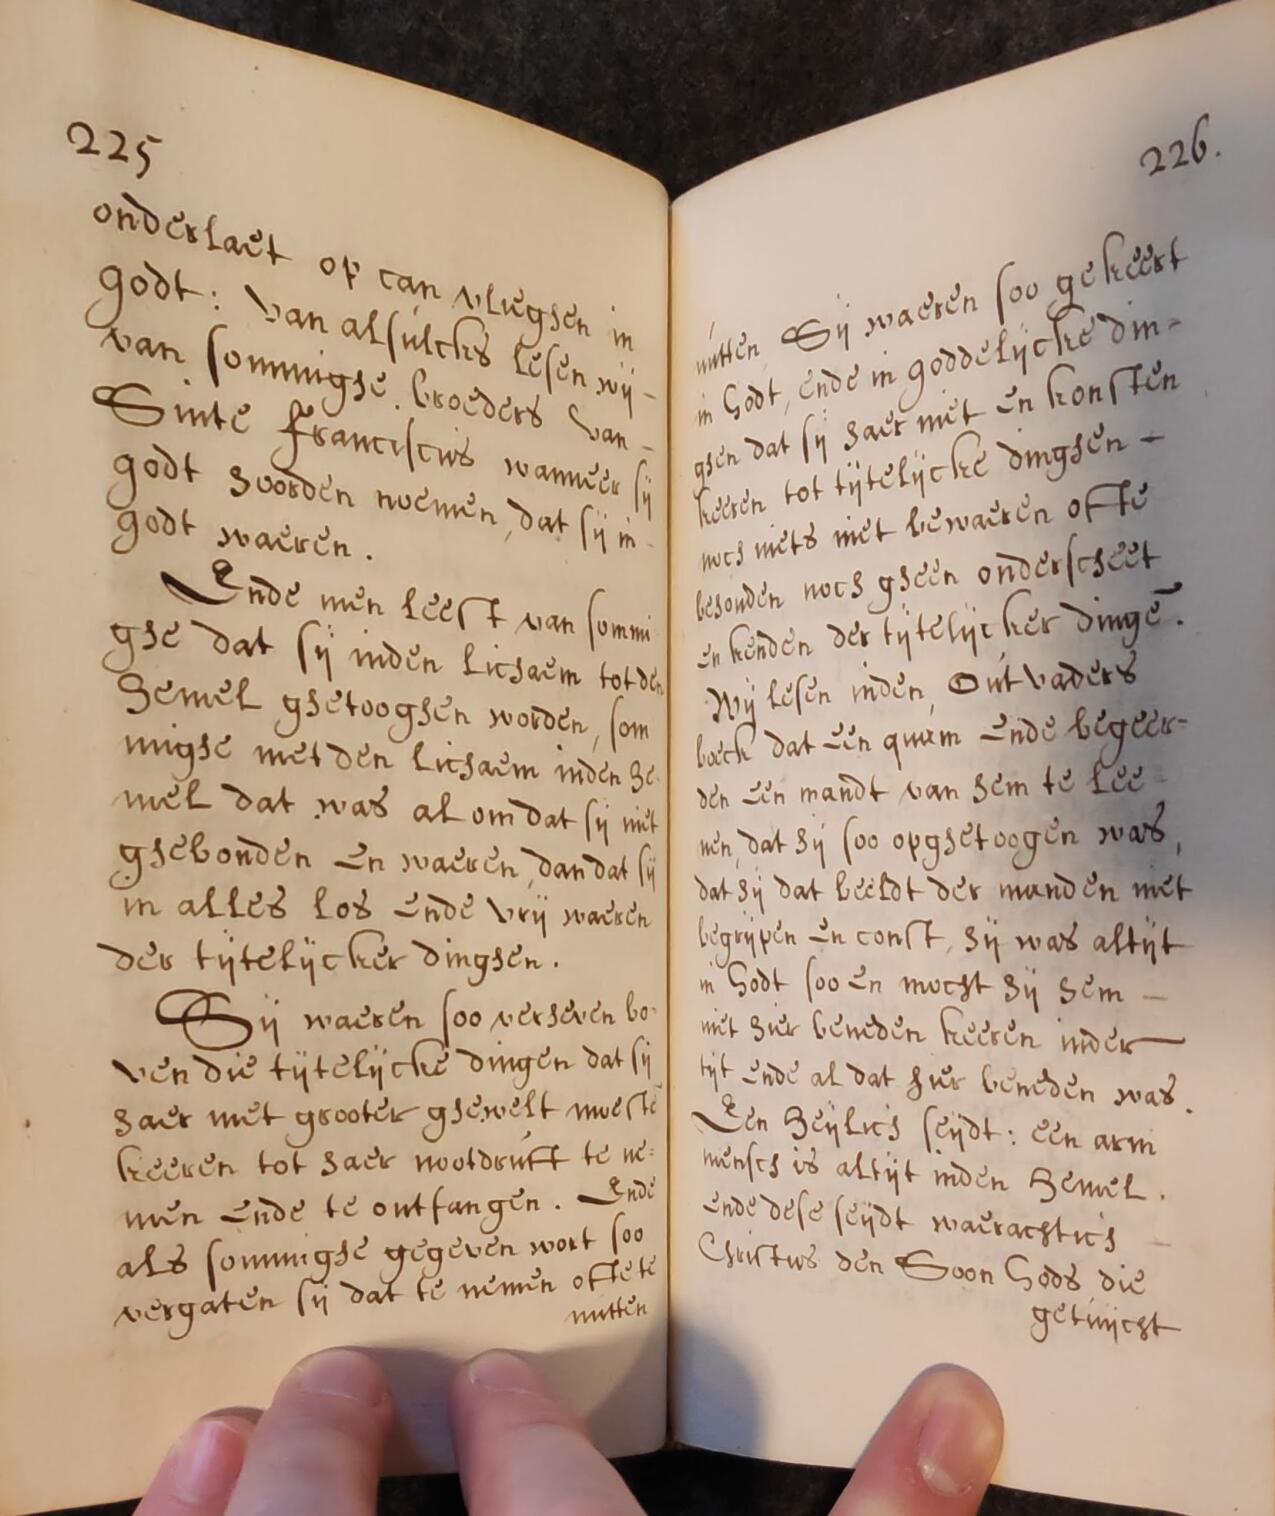 225
onderlaet op can vlieghen in
godt: van alsulcks lesen wij -
van sommighe broeders van -
Sinte franciscus wanneer sij
godt hoorden noemen, dat sij in -
godt waeren.
Ende men leest van sommi
ghe dat sij inden lichaem tot den
hemel ghetooghen worden, som
mighe met den lichaem inden he-
mel dat was al om dat sij niet
ghebonden en waeren, dan dat sij
in alles los ende vrij waeren
der tijtelijcker dinghen.
Sij waeren soo verheven bo-
ven die tijtelijcke dingen dat sij
haer met grooter ghewelt moestē
keeren tot haer nootdruft te ne=
men ende te ontfangen. Ende
als sommighe gegeven wort soo
vergaten sij dat te nemen ofte te
nutten
226.
nutten Sij waeren soo gekeert
in Godt, ende in goddelijcke din=
ghen dat sij haer niet en konsten
keeren tot tijtelijcke dinghen -
noch niets niet bewaeren ofte
behouden noch gheen onderscheet
en kenden der tijtelijcker dingē.
Wij lesen inden, Out vaders
boeck dat een quam ende begeer=
den een mandt van hem te lee -
nen, dat hij soo opghetoogen was,
dat hij dat beeldt der manden niet
begrijpen en const, hij was altijt
in Godt soo en mocht hij hem -
niet hier beneden keeren inder
tijt ende al dat hier beneden was.
Een heijlich seijdt: een arm
mensch is altijt inden hemel.
ende dese seijdt waerachtich -
Christus den Soon Gods die
getuijcht